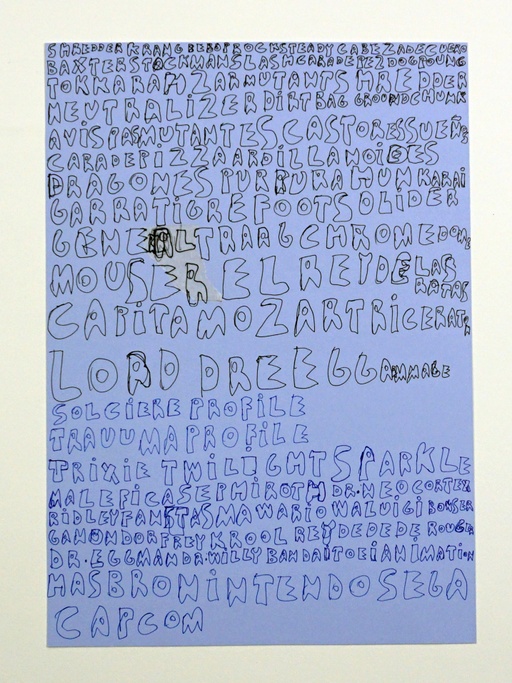 SHREDDER KRANG BEBOP ROCKSTEADY CABEZA DE CUERO
BAXTER STOCKMAN SLASH CARA DE PEZ DOGPOUND
TOKKA RAHZAR MUTANT SHREDDER
NEUTRALIZER DIRTBAG GROUNDCHUNK
AVISPAS MUTANTES CASTORES SUEÑOS
CARA DE PIZZA ARDILLANOIDES
DRAGONES PURPURA HUN KARAI
GARRA TIGRE FOOTS O LIDER
GENERAL TRAAG CHROME DOME
MOUSER EL REY DE LAS RATAS
CAPITAMOZAR TRICERATR
LORD DREEGG AMMAGE
SOLCIERE PROFILE
TRAUUMA PROFILE
TRIXIE TWILIGHT SPARKLE
MALEFICA SEPHIROTH DR. NEO CORTEX
RIDLEY FANTASMA WARIO WALUIGI BOWSER
GANONDORF REY K ROOL REY DEDEDE ROUGE
DR. EGGMAN DR. WILLY BANDAI TOEI ANIMATION
HASBRO NINTENDO SEGA
CAPCOM